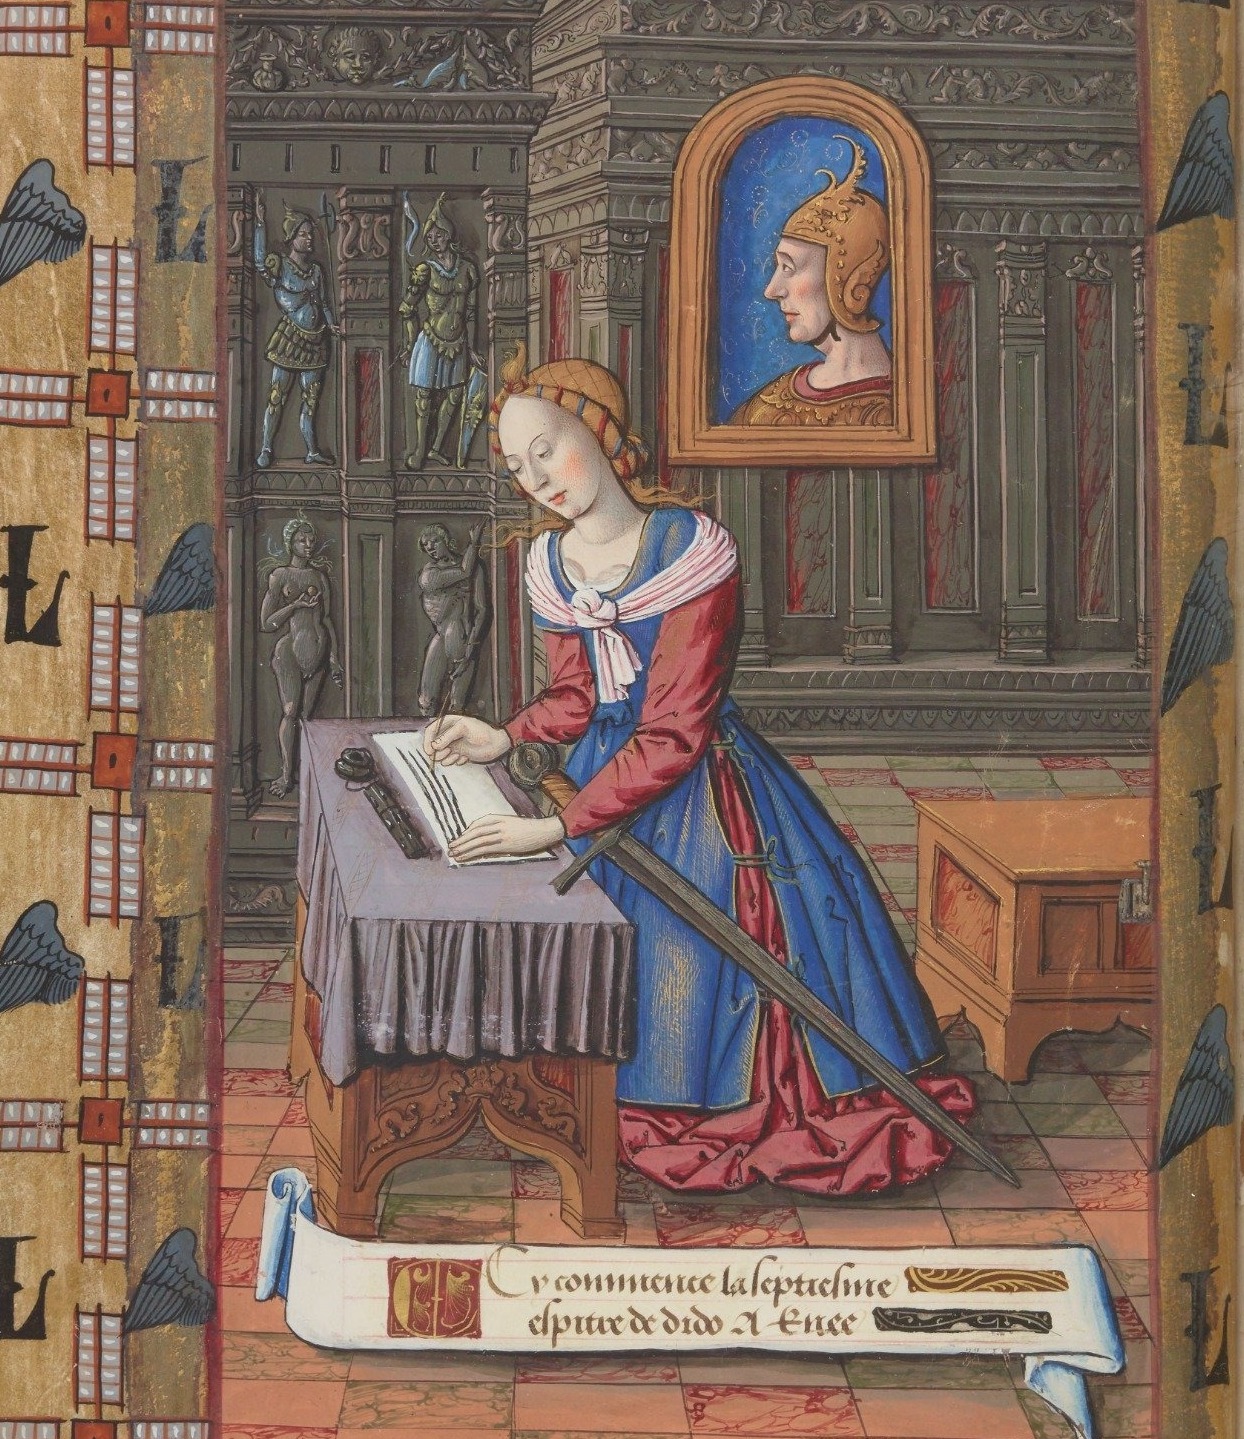 Cy commence la septiesme
espitre de dido A Enee
L
L
L
L
L
L
L
L